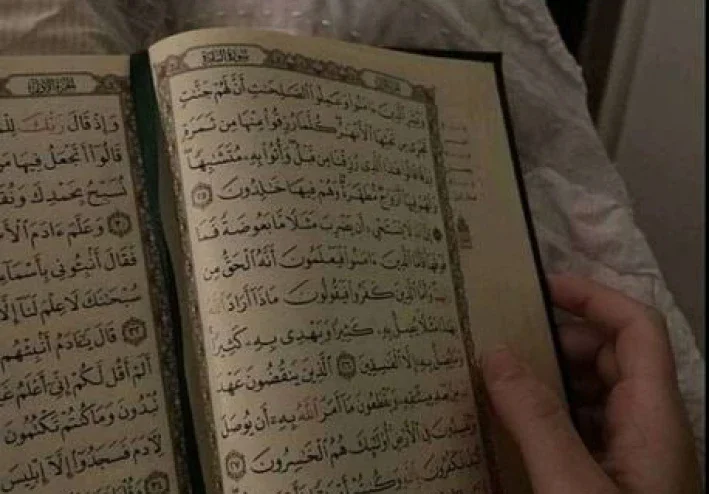 سُورَةُ البَقَرَةِ
وَبَشِّرِ ٱلَّذِينَ ءَامَنُوا۟ وَعَمِلُوا۟ ٱلصَّٰلِحَٰتِ أَنَّ لَهُمْ جَنَّٰتٍ
تَجْرِى مِن تَحْتِهَا ٱلْأَنْهَٰرُ كُلَّمَا رُزِقُوا۟ مِنْهَا مِن ثَمَرَةٍ
رِّزْقًا قَالُوا۟ هَٰذَا ٱلَّذِى رُزِقْنَا مِن قَبْلُ وَأُتُوا۟ بِهِۦ مُتَشَٰبِهًا
وَلَهُمْ فِيهَآ أَزْوَٰجٌ مُّطَهَّرَةٌ وَهُمْ فِيهَا خَٰلِدُونَ ٢٥
إِنَّ ٱللَّهَ لَا يَسْتَحْىِۦٓ أَن يَضْرِبَ مَثَلًا مَّا بَعُوضَةً فَمَا
فَوْقَهَا فَأَمَّا ٱلَّذِينَ ءَامَنُوا۟ فَيَعْلَمُونَ أَنَّهُ ٱلْحَقُّ مِن
رَّبِّهِمْ وَأَمَّا ٱلَّذِينَ كَفَرُوا۟ فَيَقُولُونَ مَاذَآ أَرَادَ ٱللَّهُ
بِهَٰذَا مَثَلًا يُضِلُّ بِهِۦ كَثِيرًا وَيَهْدِى بِهِۦ كَثِيرًا
وَمَا يُضِلُّ بِهِۦٓ إِلَّا ٱلْفَٰسِقِينَ ٢٦ ٱلَّذِينَ يَنقُضُونَ عَهْدَ
ٱللَّهِ مِنۢ بَعْدِ مِيثَٰقِهِۦ وَيَقْطَعُونَ مَآ أَمَرَ ٱللَّهُ بِهِۦٓ أَن يُوصَلَ
وَيُفْسِدُونَ فِى ٱلْأَرْضِ أُو۟لَٰٓئِكَ هُمُ ٱلْخَٰسِرُونَ ٢٧
كَيْفَ تَكْفُرُونَ بِٱللَّهِ وَكُنتُمْ
الجُزْءُ الأَوَّلُ
وَإِذْ قَالَ رَبُّكَ
قَالُوٓا۟ أَتَجْعَلُ فِيهَا مَن
نُسَبِّحُ بِحَمْدِكَ
٣٠ وَعَلَّمَ ءَادَمَ
فَقَالَ أَنۢبِـُٔونِى بِأَسْمَآءِ
سُبْحَٰنَكَ لَا عِلْمَ لَنَآ إِلَّا
٣٢ قَالَ يَٰٓـَٔادَمُ أَنۢبِئْهُم
أَلَمْ أَقُل لَّكُمْ إِنِّىٓ أَعْلَمُ
تُبْدُونَ وَمَا كُنتُمْ تَكْتُمُونَ
لِـَٔادَمَ فَسَجَدُوٓا۟ إِلَّآ إِبْلِيسَ
٣٤ وَقُلْنَا